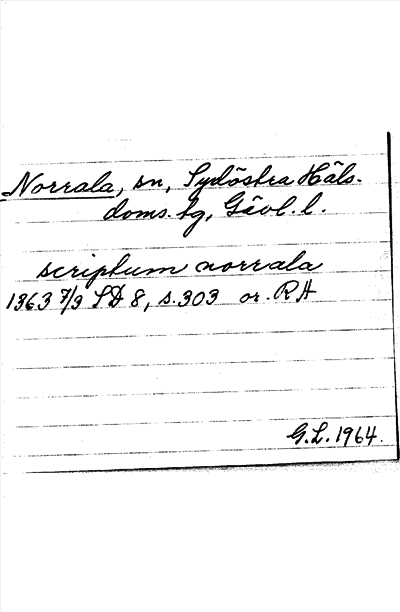 Norrala, sn, Sydöstra Häls-
doms. tg, Gävl. l.
scriptum norrala
1363 7/3 SD 8, s. 303 or. RA
G.L. 1964.